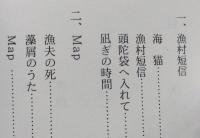 一、漁村短信
海猫
漁村短信
頭陀袋へ入れて
凪ぎの時間
二、Map
漁夫の死
藻屑のうた
Map